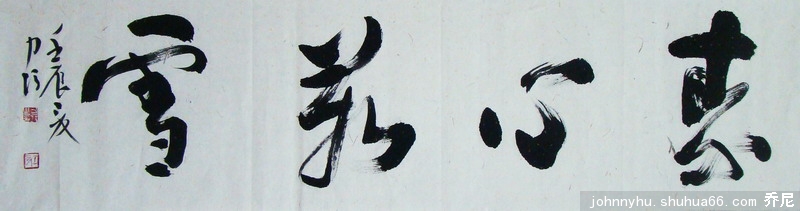 素心若雪
壬辰夏
johnnyhu. shuhua66. com 乔尼